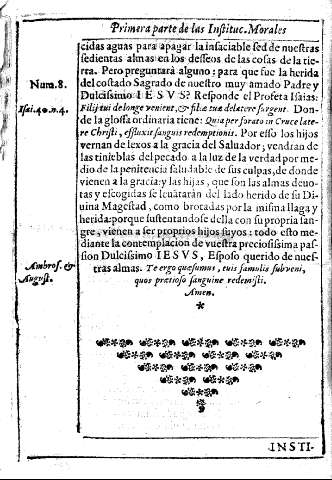 Primera parte de las Instituc. Morales
cidas aguas para apagar la insaciable sed de nuestras
sedientas almas en los desseos de las cosas de la tie-
rra. Pero preguntará alguno; para que fue la herida
Num. 8.
del costado Sagrado de nuestro muy amado Padre y
Dulcissimo IESVS? Responde el Profeta Isaias:
Isai. 40. n. 4.
Filij tui de longe venient, & filiæ tuæ de latere surgent. Don-
de la glossa ordinaria tiene: Quia perforato in Cruce late-
re Christi, effluxit sanguis redemptionis. Por esso los hijos
vernan de lexos a la gracia del Saluador; vendran de
las tinieblas del pecado a la luz de la verdad por me-
dio de la penitencia saludable de sus culpas, de donde
vienen a la gracia: y las hijas, que son las almas deuo-
tas y escogidas se leuãtarán del lado herido de su Di-
uina Magestad, como brotadas por la misma llaga y
herida: porque sustentandose della con su propria san-
gre, vienen a ser proprios hijos suyos: todo esto me-
diante la contemplacion de vuestra preciosissima pas-
sion Dulcissimo IESVS, Esposo querido de nues-
Ambros. &
August.
tras almas. Te ergo quæsumus, tuis famulis subveni,
quos prætioso sanguine redemisti.
Amen.
INSTI-